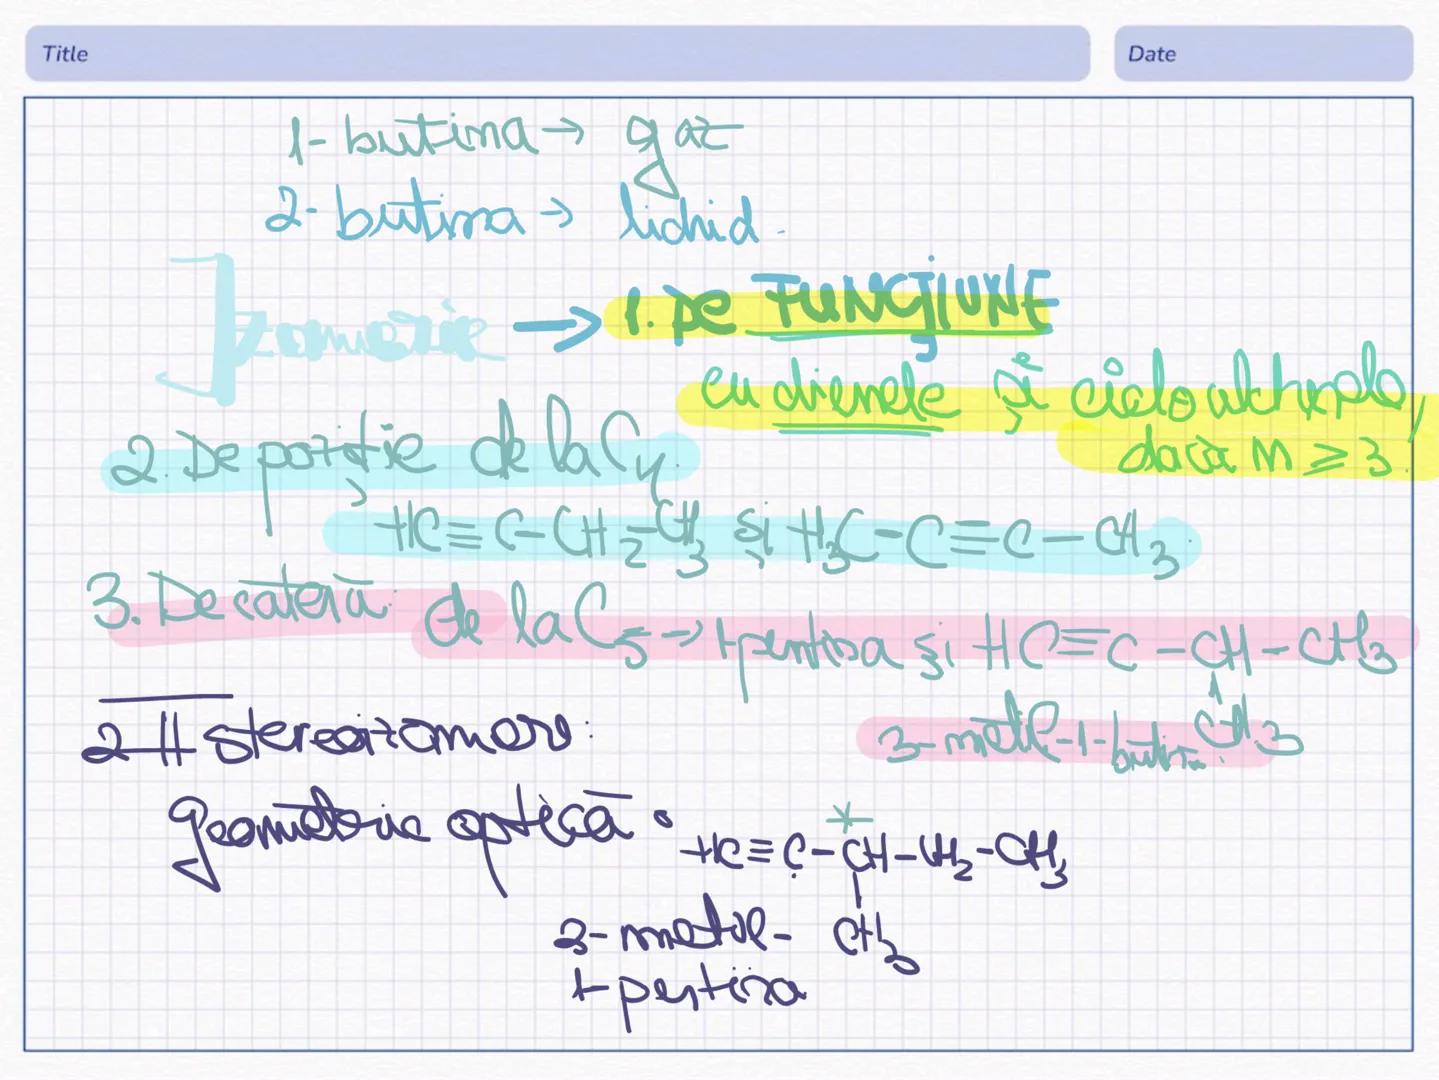 Title
Date
1-butina → gaz
2-butina → lichid.
Izomerie → 1. pe FUNCȚIUNE
cu dienele și cicloalchenele,
dacă n ≥ 3.
2. De poziție de la C4.
HC≡C-CH2-CH3 și H3C-C≡C-CH3
3. De catenă. de la C5 → 1-pentina și HC≡C-CH-CH3
CH3
3-metil-1-butina.
geometrie optică:
HC≡C-CH-CH2-CH3
*
CH3
3-metil-
1-pentina